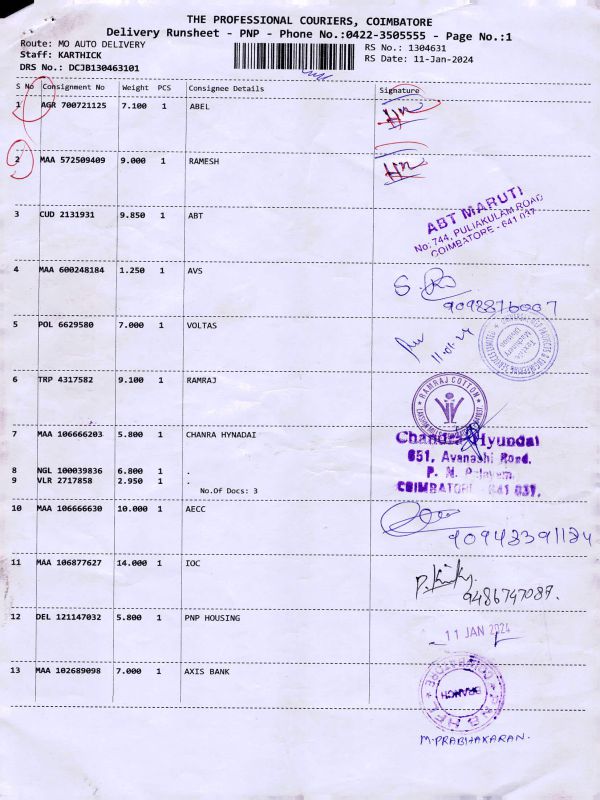 THE PROFESSIONAL COURIERS, COIMBATORE
Delivery Runsheet - PNP - Phone No.:0422-3505555 - Page No.:1
Route: MO AUTO DELIVERY
RS No.: 1304631
Staff: KARTHICK
RS Date: 11-Jan-2024
DRS No.: DCJB130463101
S No Consignment No Weight PCS Consignee Details Signature
1 AGR 700721125 7.100 1 ABEL
2 MAA 572509409 9.000 1 RAMESH
3 CUD 2131931 9.850 1 ABT
ABT MARUTI
No: 744, PULIAKULAM ROAD
COIMBATORE - 641 037
4 MAA 600248184 1.250 1 AVS
5 POL 6629580 7.000 1 VOLTAS
11.01.24
6 TRP 4317582 9.100 1 RAMRAJ
RAMRAJ COTTON
7 MAA 106666203 5.800 1 CHANRA HYNADAI
Chandra Hyundai
651, Avanashi Road.
P. N. Palayam,
COIMBATORE - 641 037.
8 NGL 100039836 6.800 1 .
9 VLR 2717858 2.950 1 .
No.Of Docs: 3
10 MAA 106666630 10.000 1 AECC
11 MAA 106877627 14.000 1 IOC
9486747087.
12 DEL 121147032 5.800 1 PNP HOUSING
11 JAN 2024
13 MAA 102689098 7.000 1 AXIS BANK
COIMBATORE
BRANCH
M.PRABHAKARAN.